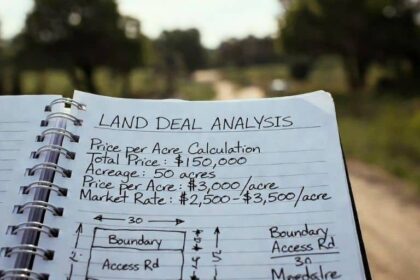 LAND DEAL ANALYSIS
Price per Acre Calculation
Total Price: $150,000
Acreage: 50 acres
Price per Acre: $3,000/acre
Market Rate: $2,500-$3,500/acre
30
Boundary
Access Rd
Boundary
Access Rd